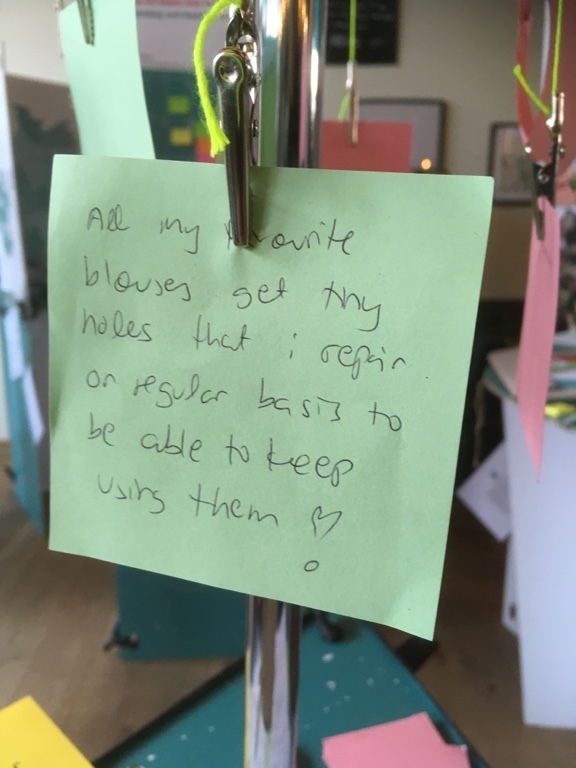 All my favourite
blouses get tiny
holes that i repair
on regular basis to
be able to keep
using them ♡
!